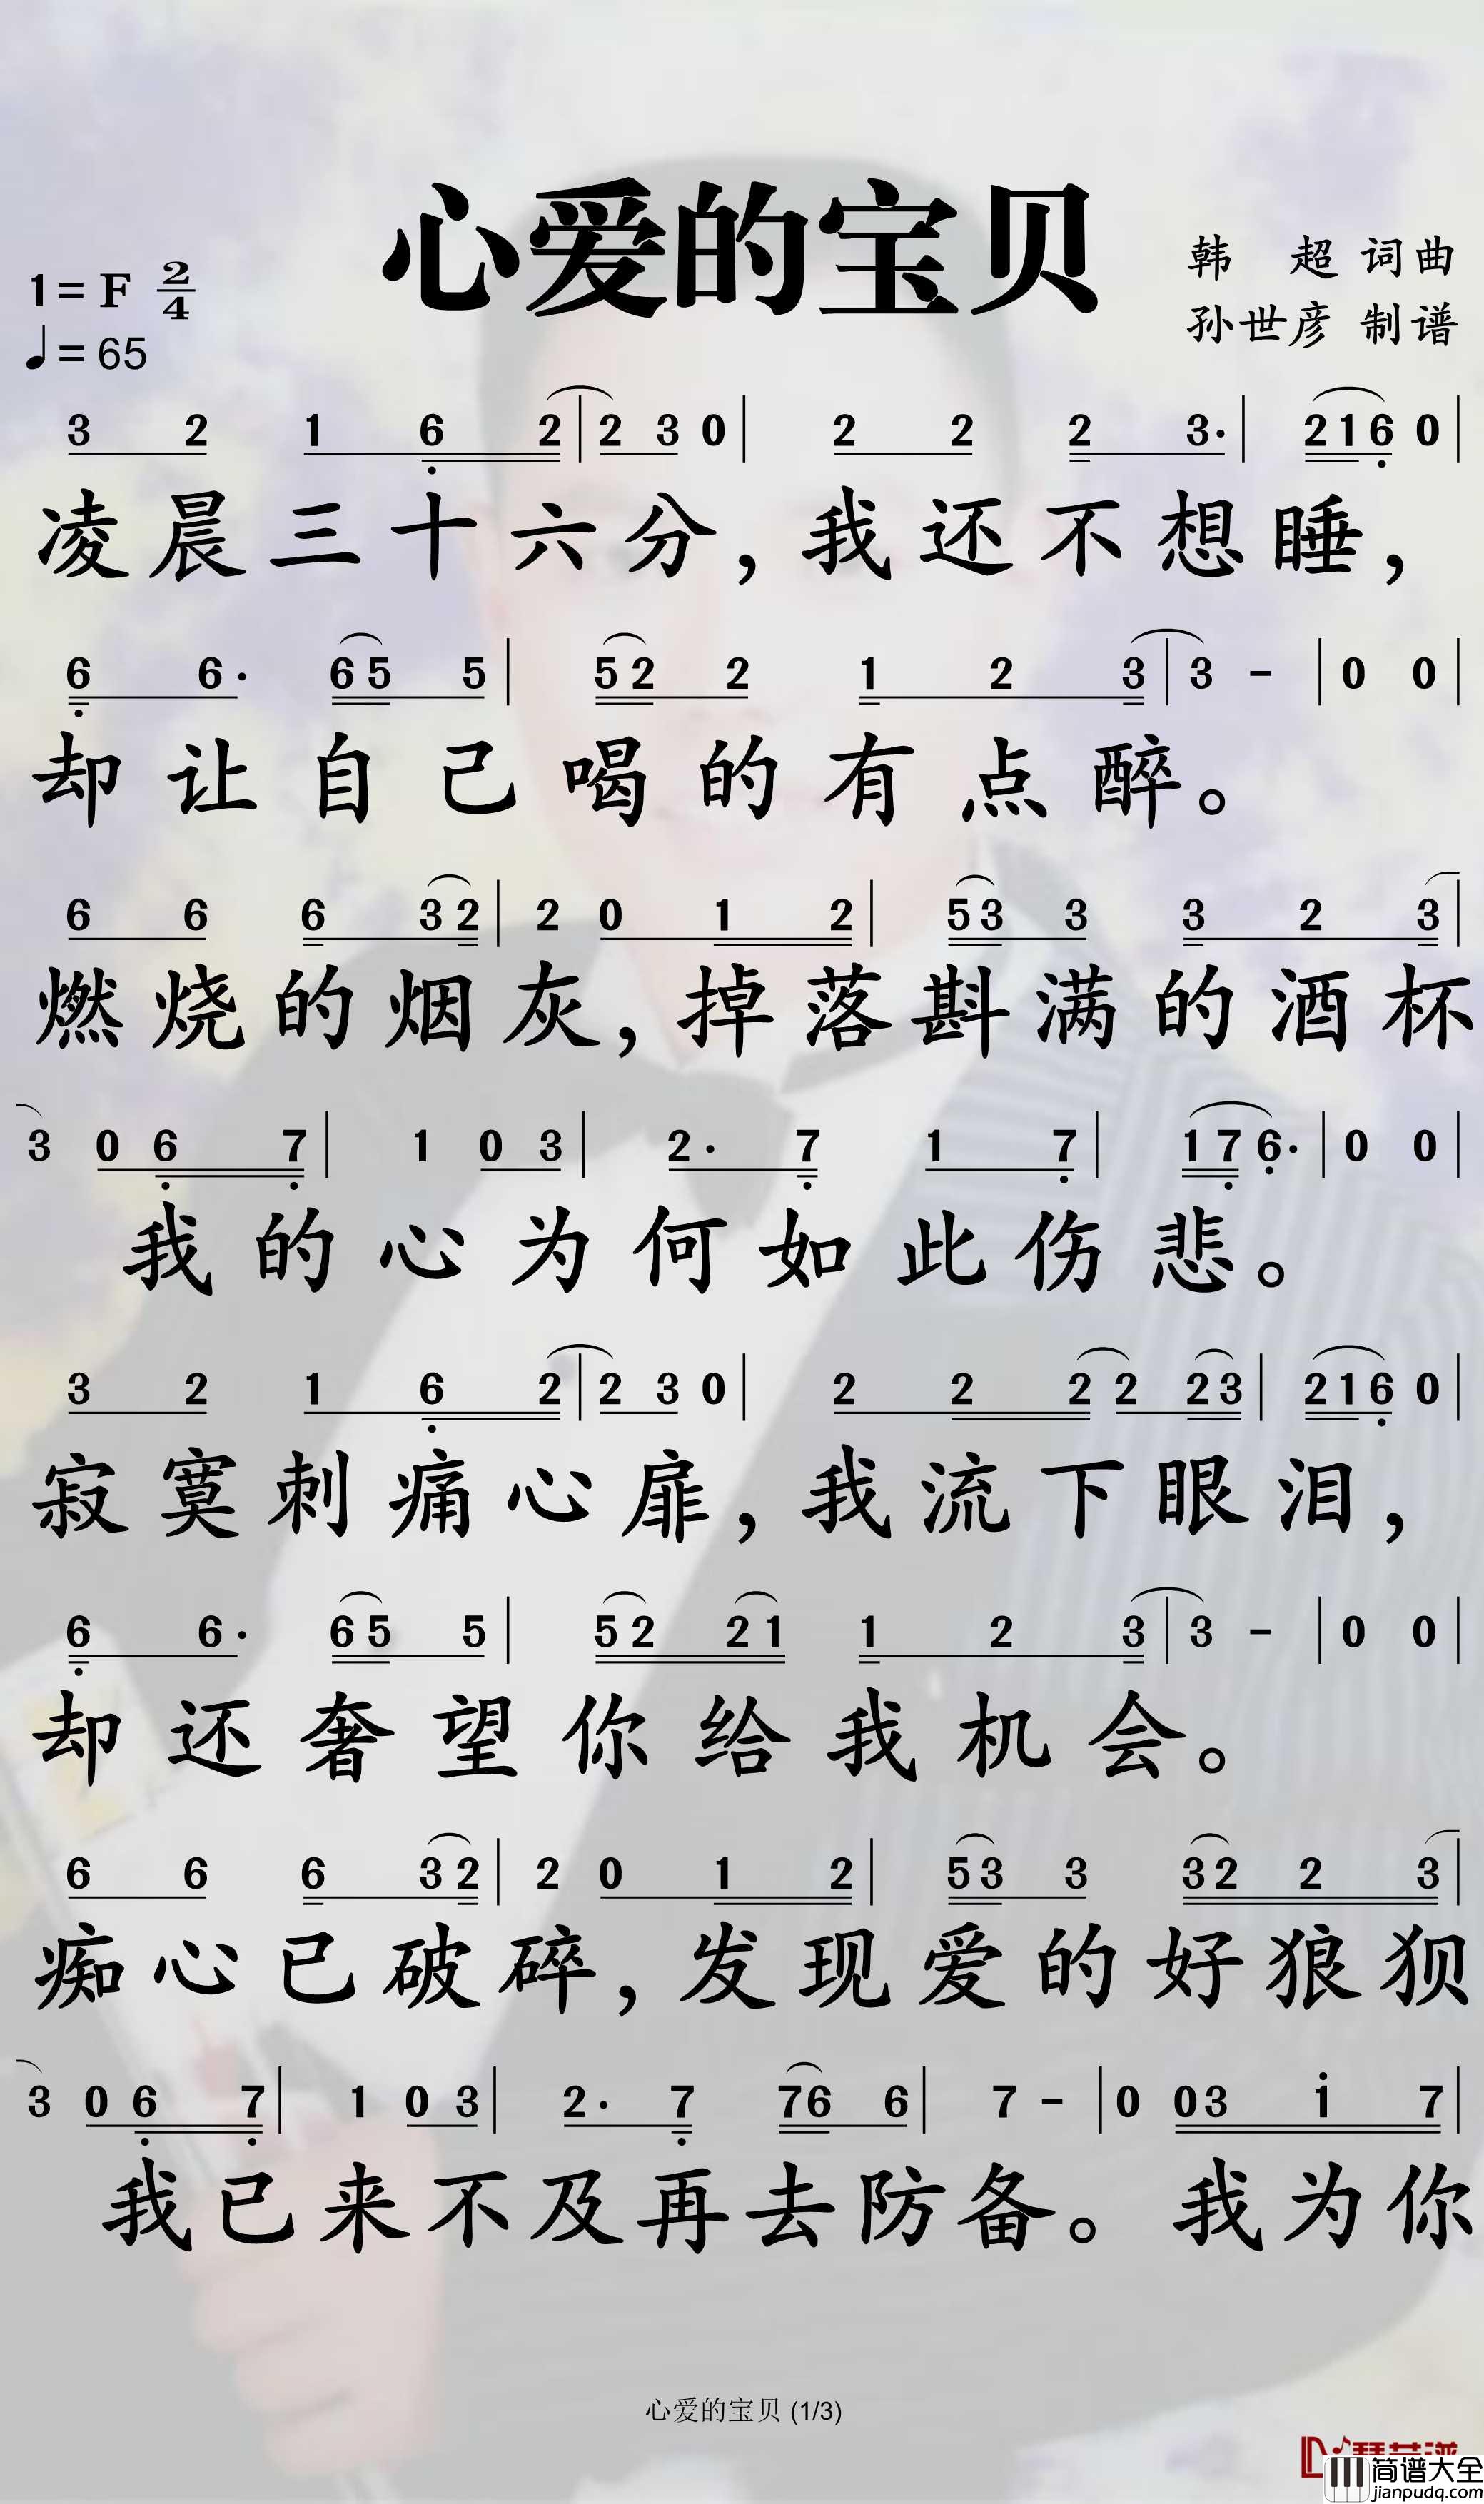 心爱的宝贝
1=F 2/4
♩=65
韩 超 词曲
孙世彦 制谱
3 2 1 6 2 | 2 3 0 | 2 2 2 3· | 2 1 6 0 |
凌晨三十六分，我还不想睡，
6 6· 6 5 5 | 5 2 2 1 2 3 | 3 - | 0 0 |
却让自己喝的有点醉。
6 6 6 3 2 | 2 0 1 2 | 5 3 3 3 2 3 |
燃烧的烟灰，掉落斟满的酒杯
3 0 6 7 | 1 0 3 | 2· 7 1 7 | 1 7 6· | 0 0 |
我的心为何如此伤悲。
3 2 1 6 2 | 2 3 0 | 2 2 2 2 2 3 | 2 1 6 0 |
寂寞刺痛心扉，我流下眼泪，
6 6· 6 5 5 | 5 2 2 1 1 2 3 | 3 - | 0 0 |
却还奢望你给我机会。
6 6 6 3 2 | 2 0 1 2 | 5 3 3 3 2 2 3 |
痴心已破碎，发现爱的好狼狈
3 0 6 7 | 1 0 3 | 2· 7 7 6 6 | 7 - | 0 0 3 i 7 |
我已来不及再去防备。我为你
心爱的宝贝 (1/3)
简谱大全
jianpudq.com